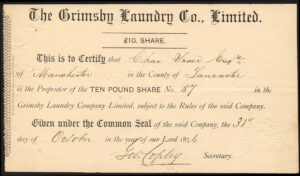 The Grimsby Laundry Co., Limited.
£10. SHARE.
This is to Certify that Esqre
of Manchester in the County of Lancaster
is the Proprietor of the TEN POUND SHARE No. 57 in the
Grimsby Laundry Company Limited, subject to the Rules of the said Company.
Given under the Common Seal of the said Company, the 31st
day of October in the year of our Lord 18
Copley Secretary.